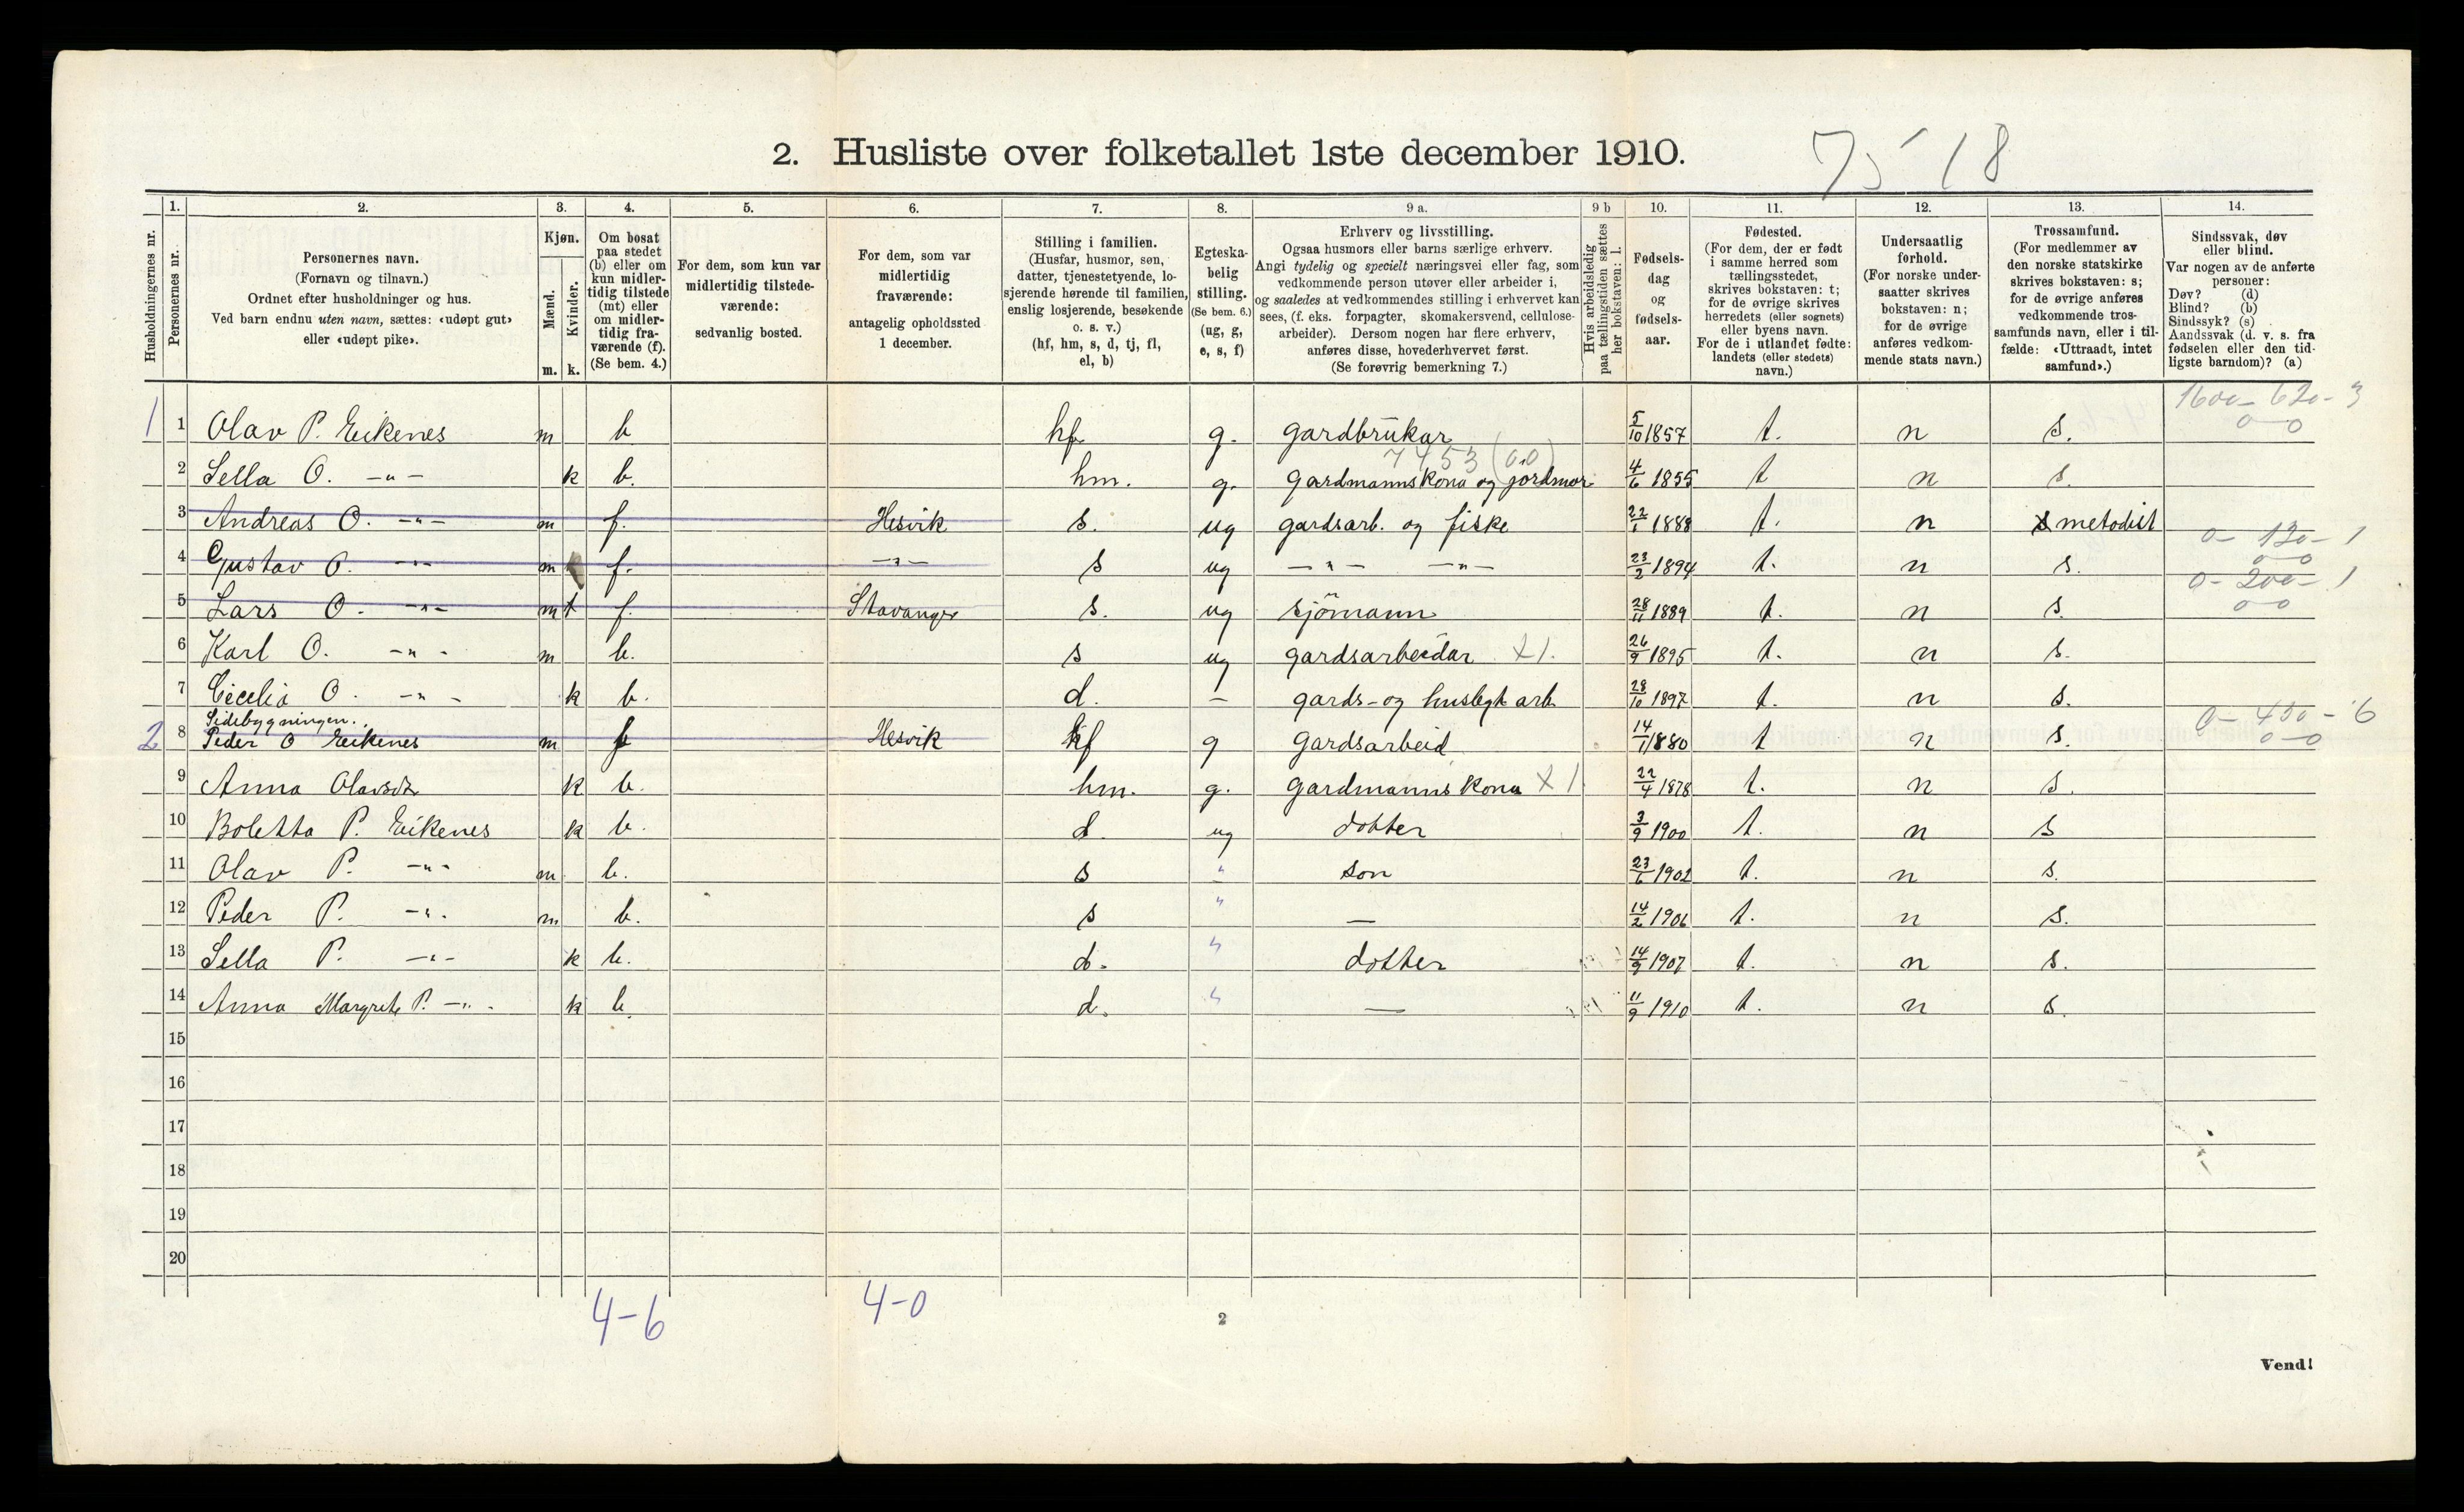 2. Husliste over folketallet 1ste december 1910.
75 18
Husholdningernes nr.
1. Personernes nr.
2. Personernes navn. (Fornavn og tilnavn.) Ordnet efter husholdninger og hus. Ved barn endnu uten navn, sættes: «udøpt gut» eller «udøpt pike».
3. Kjøn. Mænd. m. Kvinder. k.
4. Om bosat paa stedet (b) eller om kun midler-tidig tilstede (mt) eller om midler-tidig fra-værende (f). (Se bem. 4.)
5. For dem, som kun var midlertidig tilstede-værende: sedvanlig bosted.
6. For dem, som var midlertidig fraværende: antagelig opholdssted 1 december.
7. Stilling i familien. (Husfar, husmor, søn, datter, tjenestetyende, lo-sjerende hørende til familien, enslig losjerende, besøkende o. s. v.) (hf, hm, s, d, tj, fl, el, b)
8. Egteska-belig stilling. (Se bem. 6.) (ug, g, e, s, f)
9 a. Erhverv og livsstilling. Ogsaa husmors eller barns særlige erhverv. Angi tydelig og specielt næringsvei eller fag, som vedkommende person utøver eller arbeider i, og saaledes at vedkommendes stilling i erhvervet kan sees, (f. eks. forpagter, skomakersvend, cellulose-arbeider). Dersom nogen har flere erhverv, anføres disse, hovederhvervet først. (Se forøvrig bemerkning 7.)
9 b Hvis arbeidsledig paa tællingstiden sættes her bokstaven: l.
10. Fødsels-dag og fødsels-aar.
11. Fødested. (For dem, der er født i samme herred som tællingsstedet, skrives bokstaven: t; for de øvrige skrives herredets (eller sognets) eller byens navn. For de i utlandet fødte: landets (eller stedets) navn.)
12. Undersaatlig forhold. (For norske under-saatter skrives bokstaven: n; for de øvrige anføres vedkom-mende stats navn.)
13. Trossamfund. (For medlemmer av den norske statskirke skrives bokstaven: s; for de øvrige anføres vedkommende tros-samfunds navn, eller i til-fælde: «Uttraadt, intet samfund».)
14. Sindssvak, døv eller blind. Var nogen av de anførte personer: Døv? (d) Blind? (b) Sindssyk? (s) Aandssvak (d. v. s. fra fødselen eller den tid-ligste barndom)? (a)
1600 - 620 - 3
1 1 Olav P. Eikenes m b hf g. gardbrukar 5/10 1857 t. n s. 0-0
7453 (0.0)
2 Sella O. -"- k b. hm. g. gardmannskona og jordmor 4/6 1855 t n s.
3 Andreas O. -"- m f. Hesvik s. ug gardsarb. og fiske 22/1 1888 t. n s metodist
0 - 120 - 1
4 Gustav O. -"- m f. -"- s ug -"- -"- 23/2 1894 t. n s. 0-0
0 - 200 - 1
5 Lars O. -"- m f. Stavanger s. ug sjömann 28/11 1889 t. n s. 0-0
6 Karl O. -"- m b. s ug gardsarbeidar X1. 26/9 1895 t. n s.
7 Cecelia O. -"- k b. d. - gards- og huslegt arb 28/10 1897 t. n s.
Sidebygningen.
0 - 430 - 6
2 8 Peder O Eikenes m f Hesvik hf g gardsarbeid 14/1 1880 t n s. 0-0
9 Anna Olavsdtr k b. hm. g. gardmannskona X1 22/4 1878 t. n s.
10 Boletta P. Eikenes k b. d. ug dotter 3/9 1900 t. n s
11 Olav P. -"- m b. s " son 23/6 1902 t. n s.
12 Peder P. -"- m b. s " - 14/2 1906 t. n s.
13 Sella P. -"- k b. d. " dotter 14/9 1907 t. n s.
14 Anna Margrete P. -"- k b d. " - 11/9 1910 t. n s.
15
16
17
18
19
20
4-6 4-0
2
Vend!